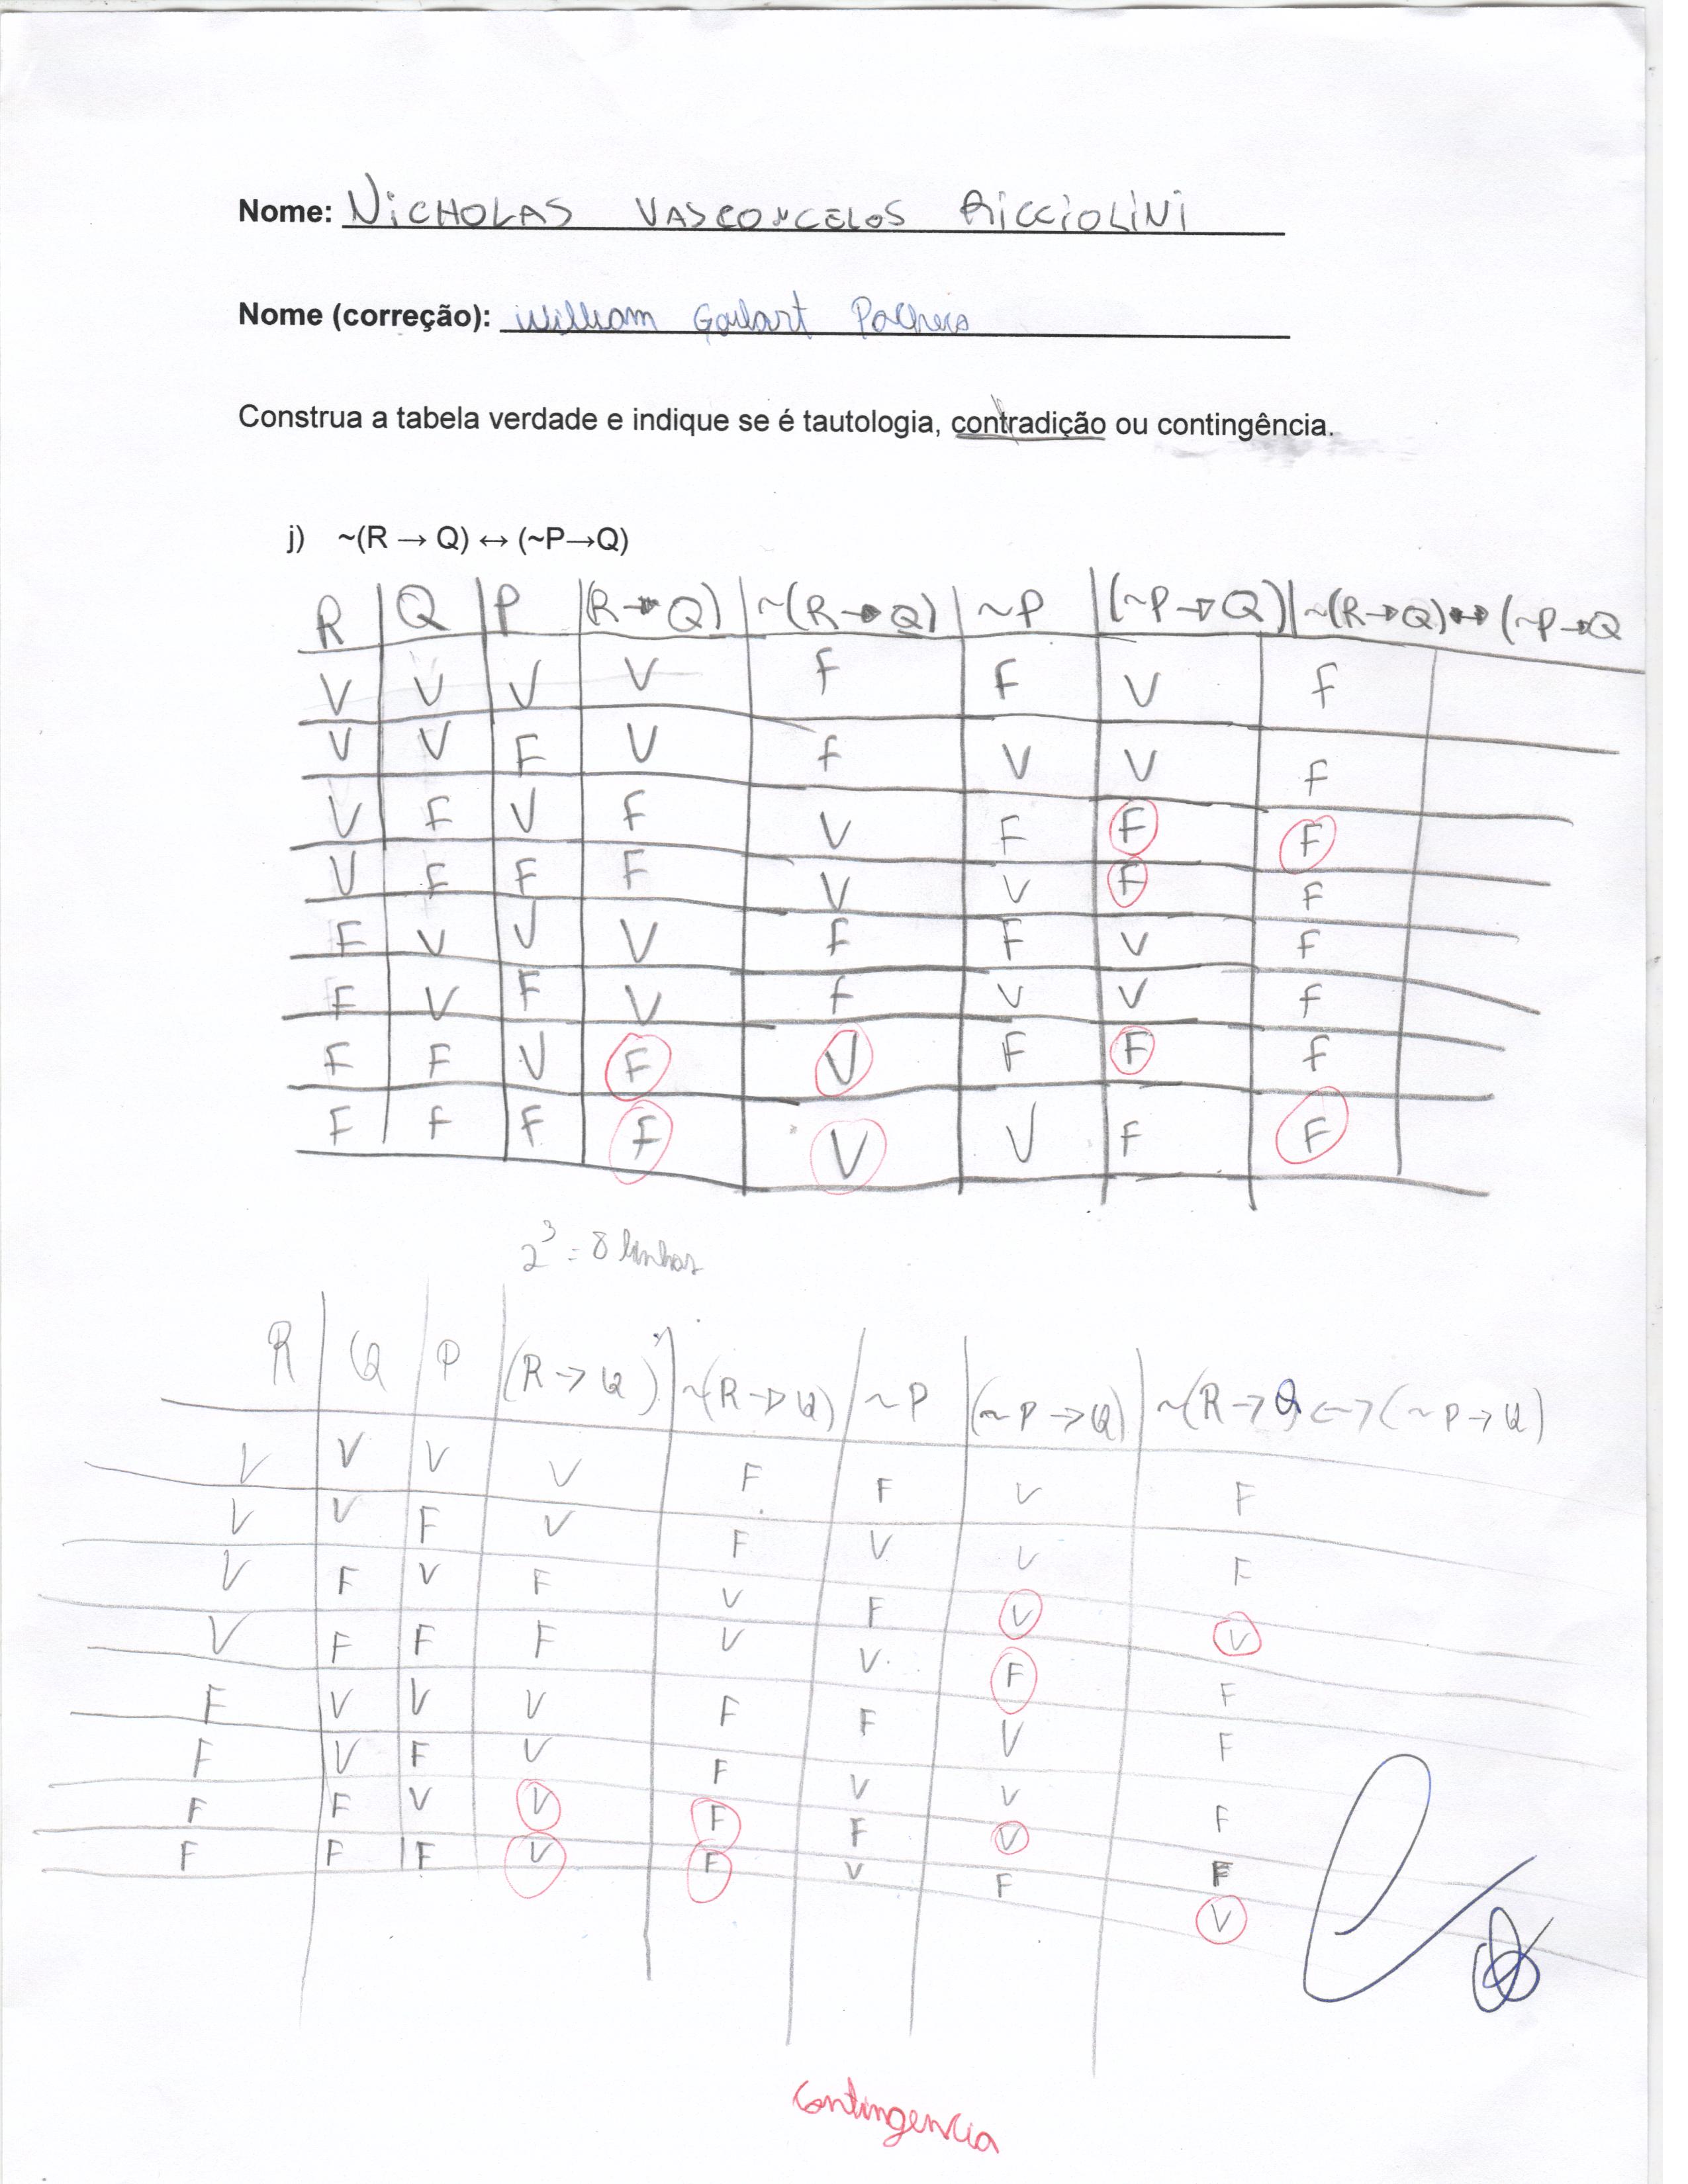 Nome: NiCHOLAS VASCONCELOS RiCCiOLiNi
Nome (correção): William Goulart Pacheco
Construa a tabela verdade e indique se é tautologia, contradição ou contingência.
j) ~(R → Q) ↔ (~P→Q)
R Q P (R → Q) ~(R → Q) ~P (~P → Q) ~(R → Q) ↔ (~P → Q
V V V V F F V F
V V F V F V V F
V F V F V F F F
V F F F V V F F
F V V V F F V F
F V F V F V V F
F F V F V F F F
F F F F V V F F
2³ = 8 linhas
R Q P (R → Q) ~(R → Q) ~P (~P → Q) ~(R → Q ↔ (~P → Q)
V V V V F F V F
V V F V F V V F
V F V F V F V V
V F F F V V F F
F V V V F F V F
F V F V F V V F
F F V V F F V F
F F F V F V F V
Contingencia